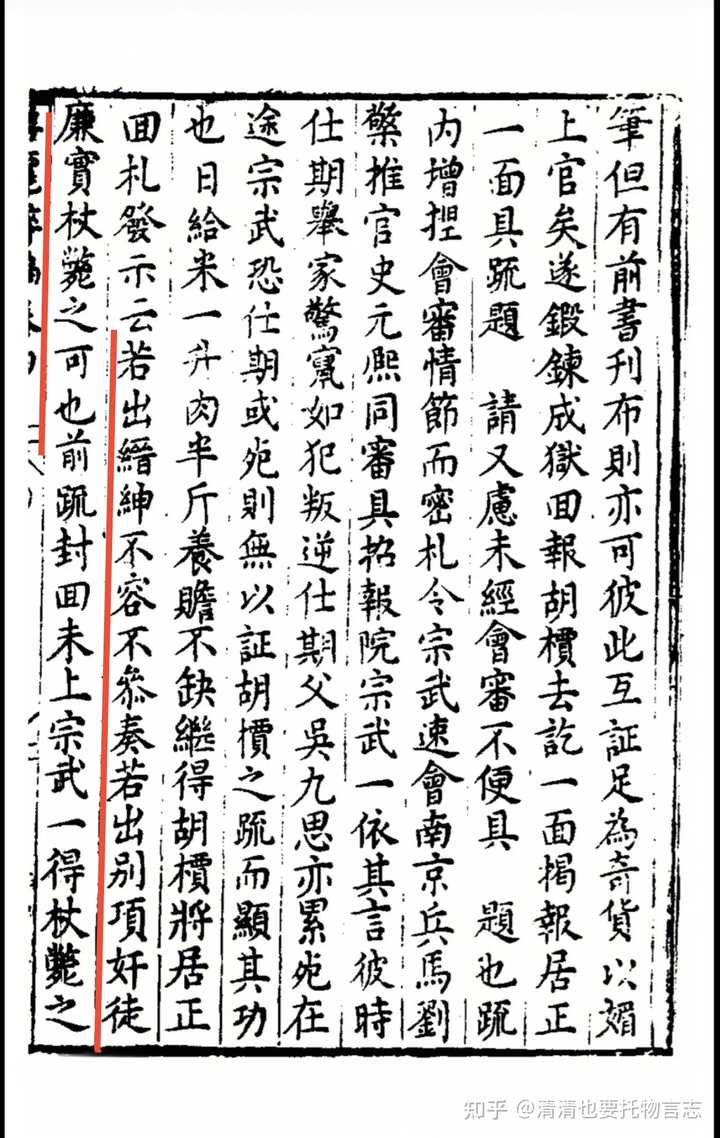 筆但有前書刊布則亦可彼此互証足為奇貨以媚
上官矣遂鍛鍊成獄囬報胡檟去訖一面揭報居正
一面具疏題 請又慮未經會審不便具 題也疏
内增揑會審情節而密札令宗武速會南京兵馬劉
檠推官史元熙同審具招報院宗武一依其言彼時
仕期舉家驚竄如犯叛逆仕期父吳九思亦累死在
途宗武恐仕期或死則無以証胡檟之疏而顯其功
也日給米一升肉半斤養贍不缺繼得胡檟將居正
囬札發示云若出縉紳不容不叅奏若出别項奸徒
廉實杖斃之可也前疏封囬未上宗武一得杖斃之
知乎 @清清也要托物言志